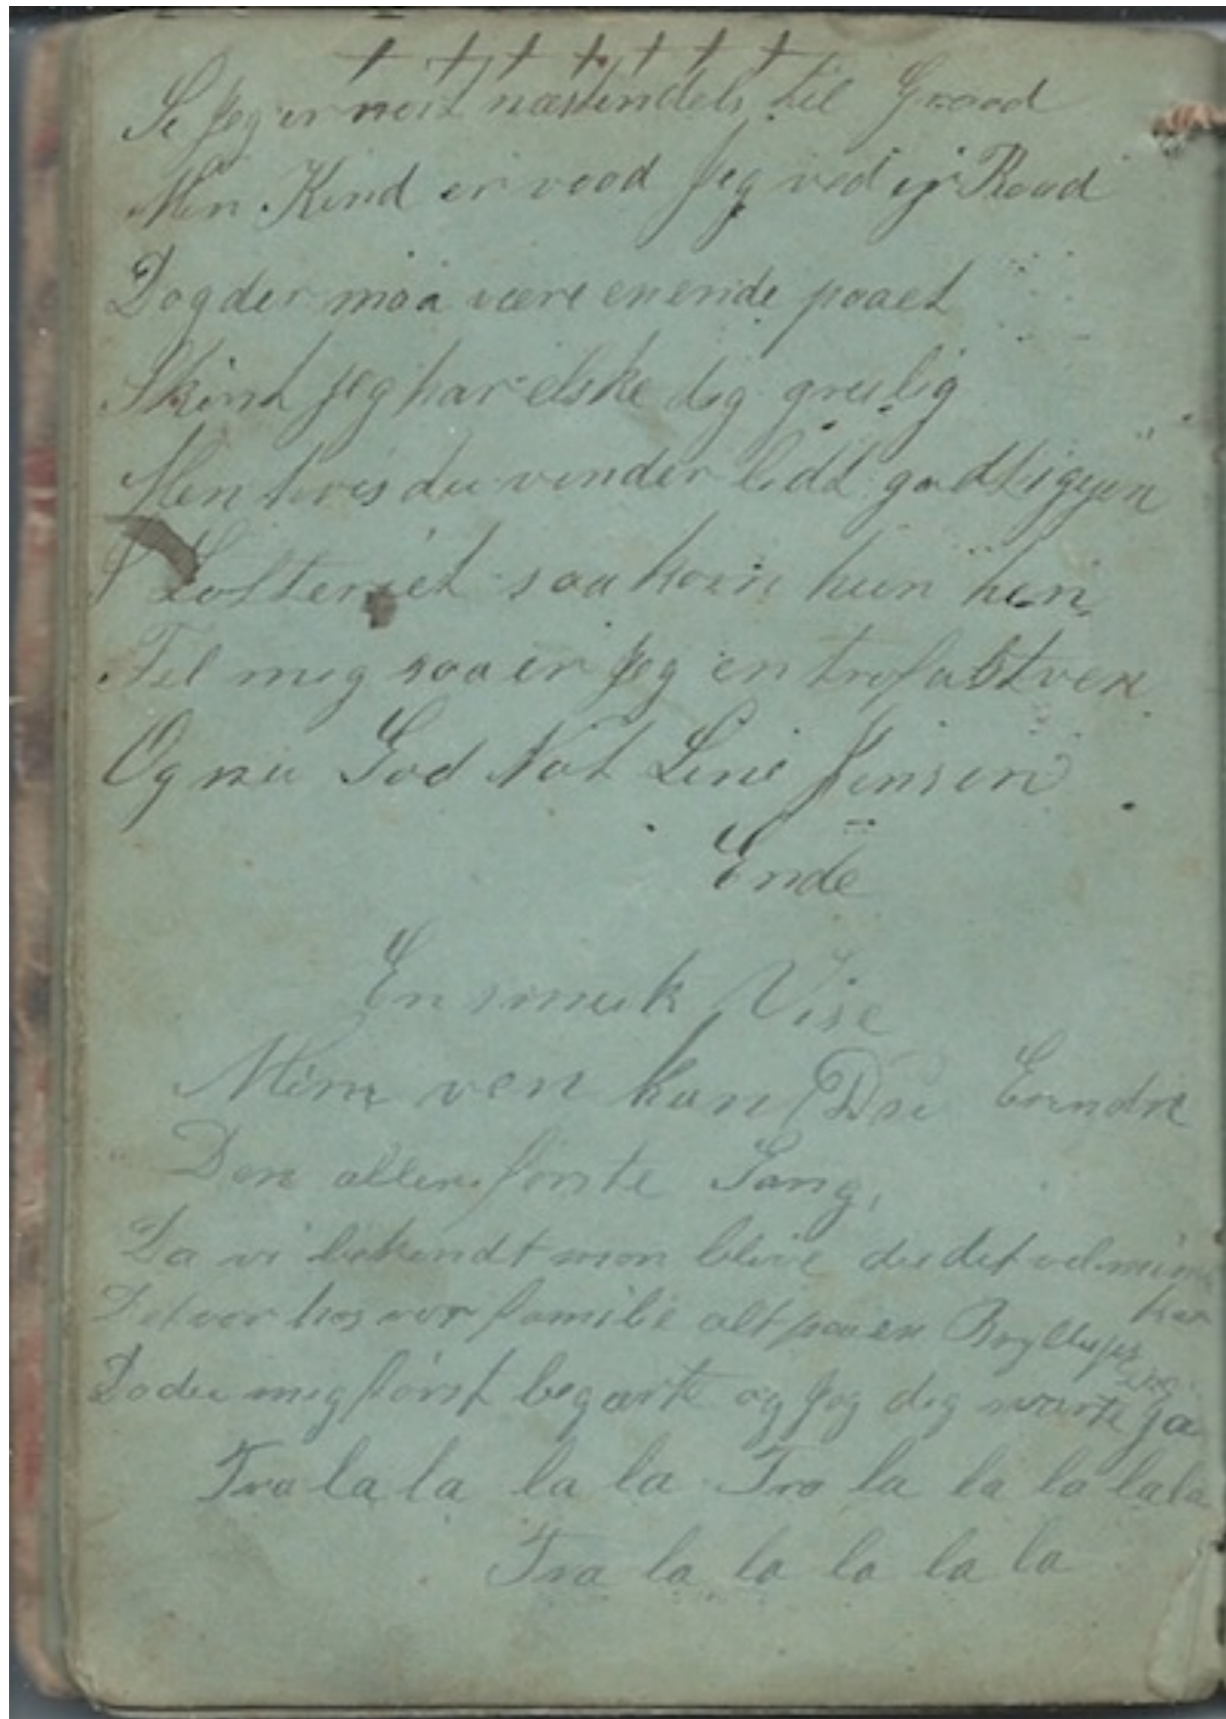 Se Jeg er nest næstendels til Graad
Min Kind er vaad Jeg ved ej Raad
Dog der maa være en ende paaet
Skint jeg har elske dig greulig
Men hvis du vinder lidt godt igjen
I Lotteriet saa kom hun hen
Til mig saa er Jeg en trofast ven
Og nu God Nat Line Jensen
Ende
En smuk Vise
Min ven kan Du Erindre
Den aller første Sang,
Da vi bekendt mon blive du det vel minde
kan
Det var hos vor familie alt paa en Bryllups
dag
Da du mig først begærte og Jeg dig svarte Ja
Tra la la la la Tra la la la la la
Tra la la la la la